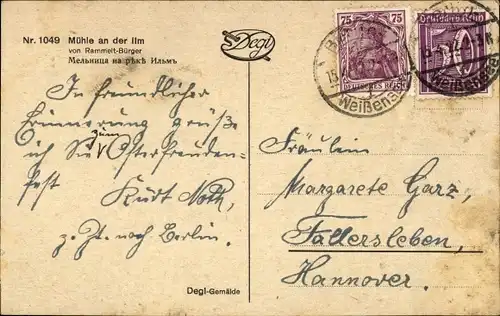 Nr. 1049 Mühle an der Ilm
von Rammelt-Bürger
Мельница на рѣкѣ Ильмъ
Degi
75 75
DEUTSCHES REICH
Deutsches Reich
50
Weißensee
Weißensee
In freundlicher
Erinnerung grüße
ich Sie zum Osterfreuden-
fest Kurt Noth,
z. Zt. noch Berlin.
Degi-Gemälde
Fräulein
Margarete Garz,
Fallersleben,
Hannover.